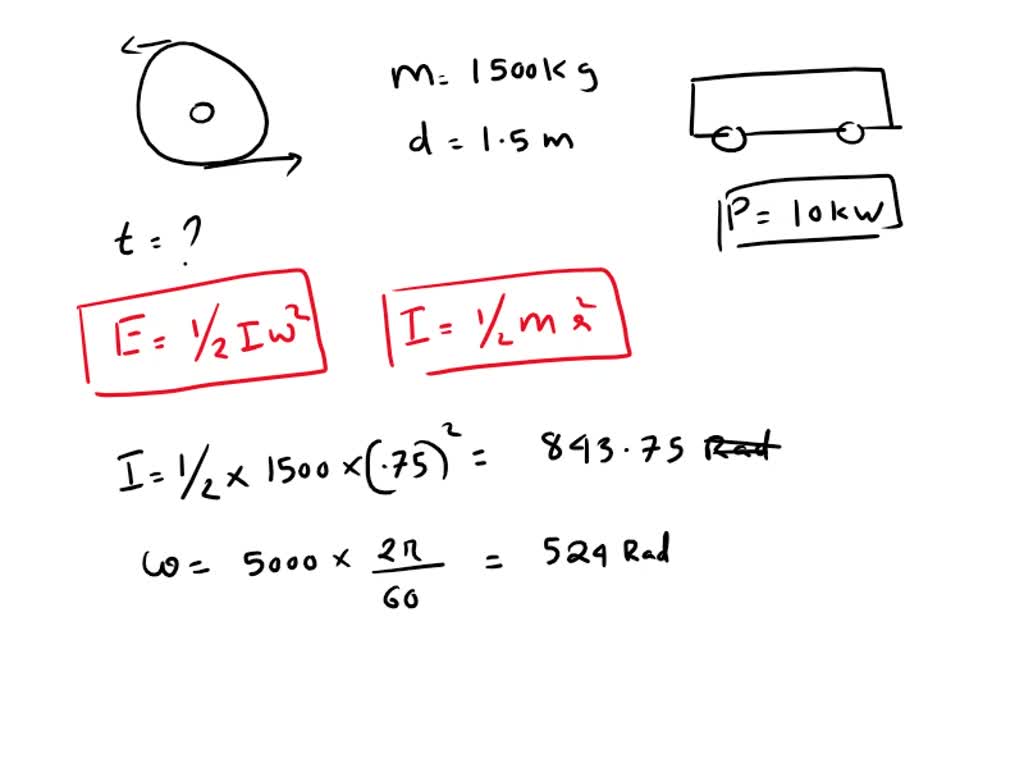 m = 1500kg
d = 1.5 m
P = 10kw
t = ?
E = 1/2 I ω²
I = 1/2 m r²
I = 1/2 × 1500 × (.75)² = 843.75 Rad
ω = 5000 × 2π/60 = 524 Rad